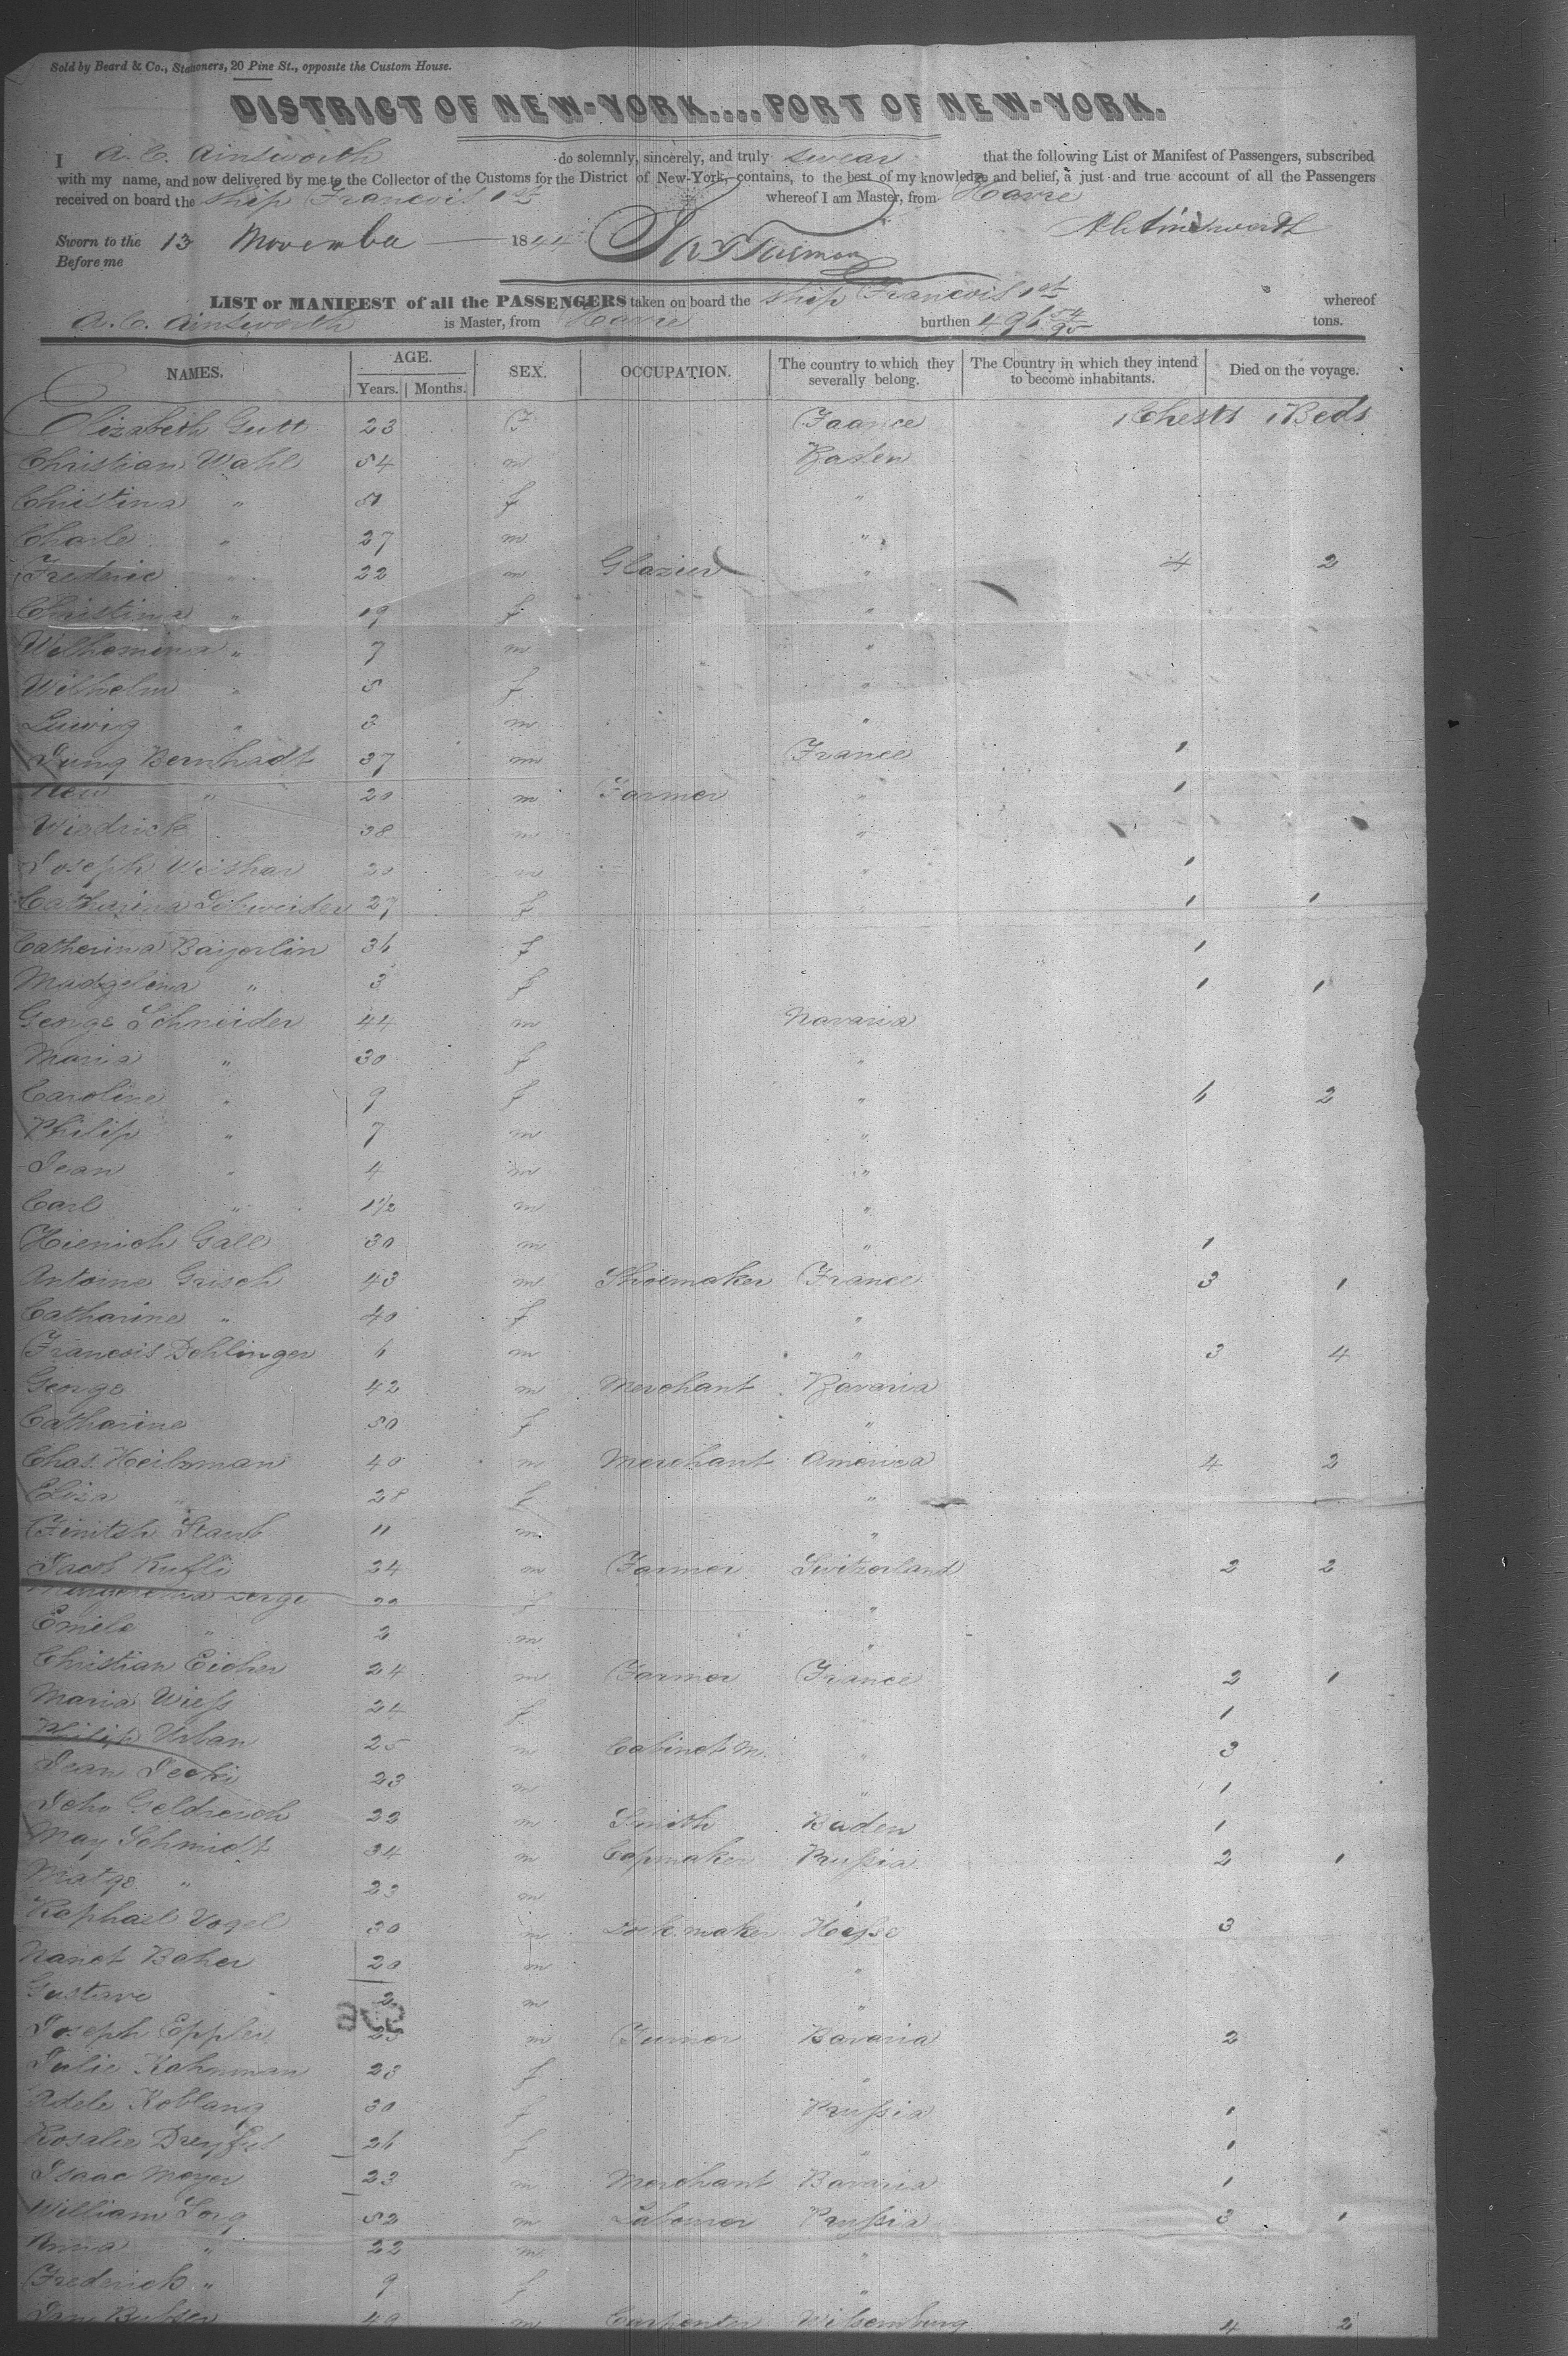 Sold by Beard & Co., Stationers, 20 Pine St., opposite the Custom House.
DISTRICT OF NEW-YORK....PORT OF NEW-YORK.
I A. C. Ainsworth do solemnly, sincerely, and truly swear that the following List or Manifest of Passengers, subscribed
with my name, and now delivered by me to the Collector of the Customs for the District of New-York, contains, to the best of my knowledge and belief, a just and true account of all the Passengers
received on board the Ship Francois 1st whereof I am Master, from Havre
Sworn to the 13 November 1844 A C Ainsworth
Before me
LIST or MANIFEST of all the PASSENGERS taken on board the ship Francois 1st whereof
A. C. Ainsworth is Master, from Havre burthen 496 54/95 tons.
NAMES. AGE. Years. Months. SEX. OCCUPATION. The country to which they severally belong. The Country in which they intend to become inhabitants. Died on the voyage.
Elizabeth Gutt 23 F Faance 1 Chests 1 Beds
Christian Wahl 54 m Baden
Christina " 50 f "
Charle " 27 m "
Frederic " 22 m Glazier " 4 2
Christina " 19 f "
Wilhemina " 7 m "
Wilhelm " 5 f "
Luwig " 3 m "
Jung Bernhadt 37 m France 1
" 20 m Farmer " 1
Wiedrick 38 m "
Joseph Weishar 20 m " 1
Catharina Schweider 27 f " 1 1
Catherina Bayerlin 36 f 1
Madgelena " 3 f 1 1
George Schneider 44 m Navaria
Maria " 30 f "
Caroline " 9 f " 6 2
Philip " 7 m "
Jean " 4 m "
Carl " 1 1/2 m "
Hienich Gall 30 m " 1
Antoine Grisch 43 m Shoemaker France 3 1
Catharine " 40 f "
Francois Dehlinger 6 m " 3 4
George 42 m Merchant Bavaria
Catharine 50 f "
Chas. Heilzman 40 m Merchant America 4 2
Eliza " 28 f "
Finitsh Staub 11 m "
Jacob Kufli 24 m Farmer Switzerland 2 2
22 f "
Emile " 2 m "
Christian Eicher 24 m Farmer France 2 1
Maria Wiess 24 f 1
Philip Urban 25 m Cabinet M. " 3
Jean Jecki 23 m " 1
John Geldreich 22 m Smith Baden 1
May Schmidt 34 m Capmaker Prussia 2 1
Matge " 23 m "
Raphael Vogel 30 m maker Hesse 3
Nanet Baher 20 m "
Gustave 2 m "
Joseph Eppler 25 m Turner Bavaria 2
Julie Kahnman 23 f "
Adele Koblang 30 f Prussia 1
Rosalie Dreyfus 26 f " 1
Isaac Meyer 23 m Merchant Bavaria 1
William Sorg 52 m Laborer Prussia 3 1
Anna " 22 m "
Frederick " 9 f "
49 m Carpenter 4 2